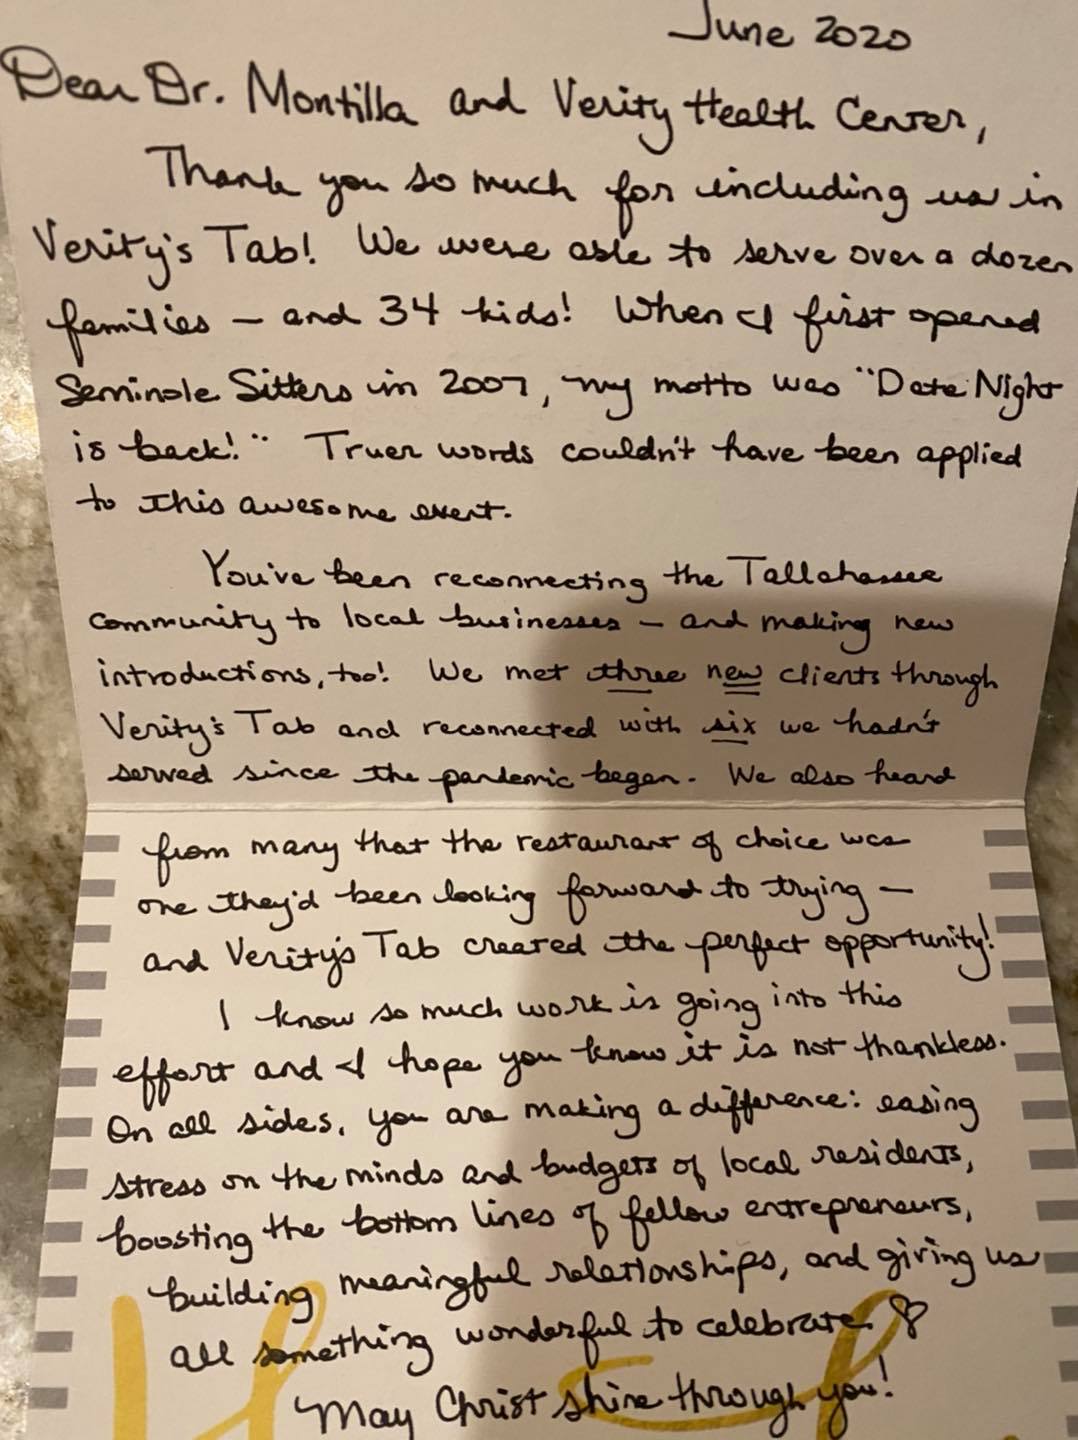 June 2020
Dear Dr. Montilla and Verity Health Center,
Thank you so much for including us in
Verity's Tab! We were able to serve over a dozen
families — and 34 kids! When I first opened
Seminole Sitters in 2007, my motto was "Date Night
is back!" Truer words couldn't have been applied
to this awesome event.
You've been reconnecting the Tallahassee
community to local businesses — and making new
introductions, too! We met three new clients through
Verity's Tab and reconnected with six we hadn't
served since the pandemic began. We also heard
from many that the restaurant of choice was
one they'd been looking forward to trying —
and Verity's Tab created the perfect opportunity!
I know so much work is going into this
effort and I hope you know it is not thankless.
On all sides, you are making a difference: easing
stress on the minds and budgets of local residents,
boosting the bottom lines of fellow entrepreneurs,
building meaningful relationships, and giving us
all something wonderful to celebrate ♡
May Christ shine through you!